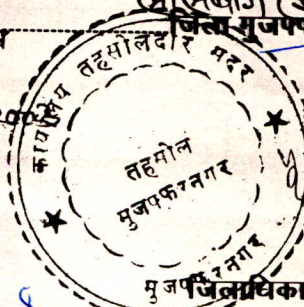 जिला मुजफ्फ
कार्यालय तहसीलदार सदर
तहसील
मुजफ्फरनगर
मुजफ्फरनगर
जिलाधिका